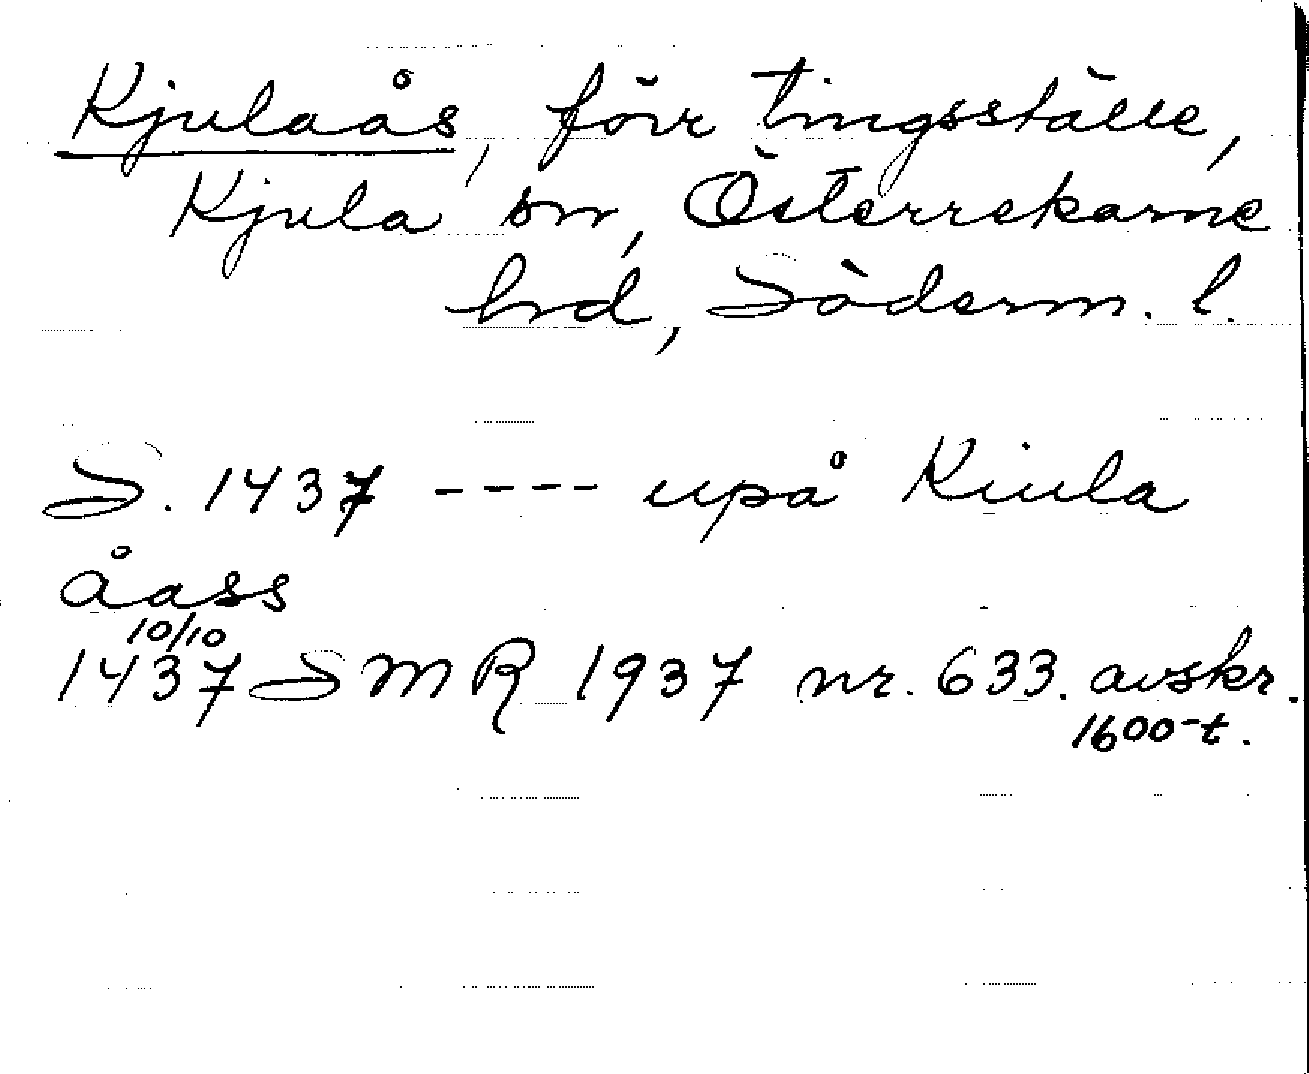 Kjulaås, förr tingsställe,
Kjula sn, Österrekarne
hrd, Söderm. l.
S. 1437 ---- upå Kiula
åass
10/10
1437 SMR 1937 nr. 633. avskr.
1600-t.